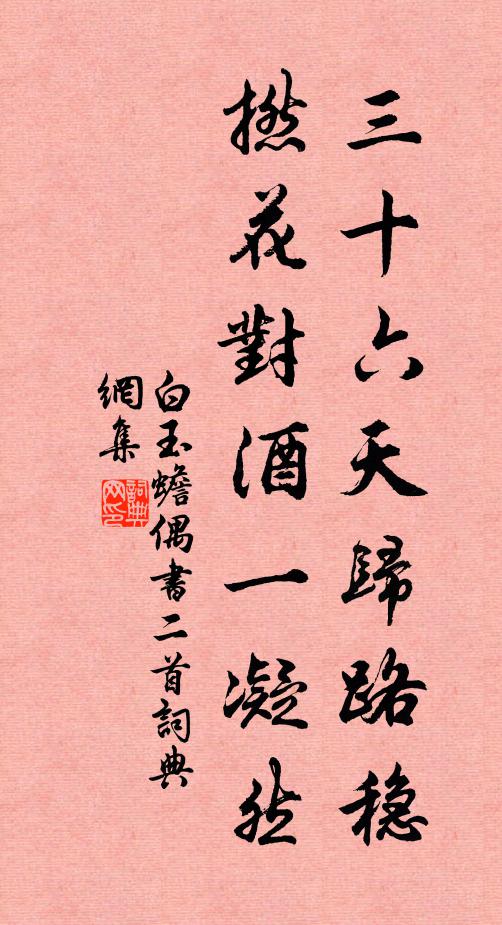 三十六天歸路穩
撚花對酒一凝然
白玉蟾偶書二首詞典
網集
詞典网印